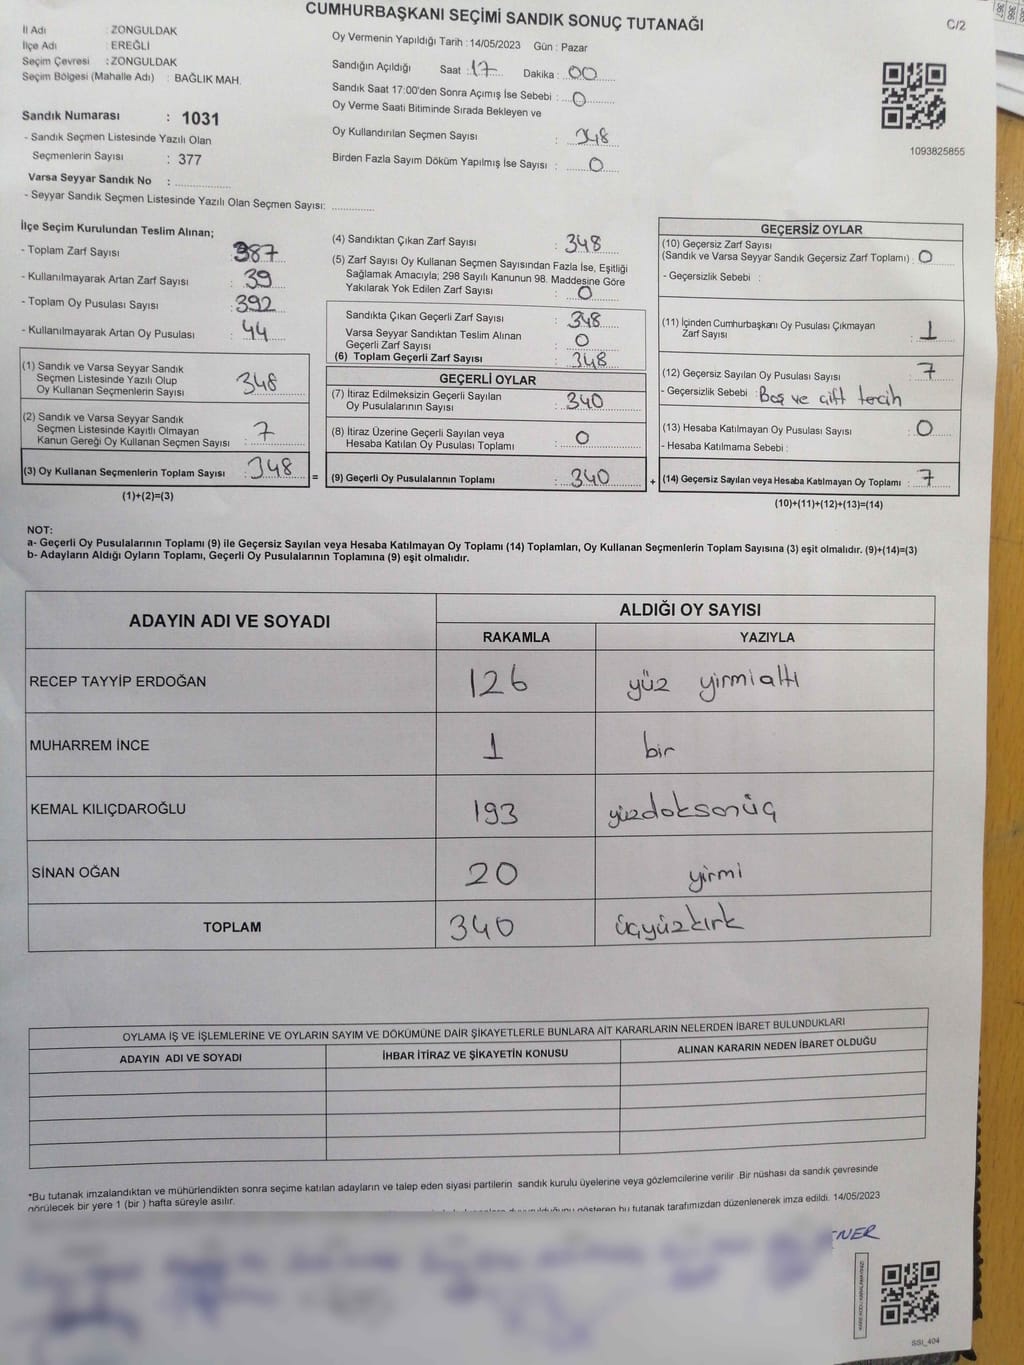 CUMHURBAŞKANI SEÇİMİ SANDIK SONUÇ TUTANAĞI
C/2
İl Adı : ZONGULDAK
İlçe Adı : EREĞLİ
Seçim Çevresi : ZONGULDAK
Seçim Bölgesi (Mahalle Adı) : BAĞLIK MAH.
Sandık Numarası : 1031
- Sandık Seçmen Listesinde Yazılı Olan
Seçmenlerin Sayısı : 377
Varsa Seyyar Sandık No :
- Seyyar Sandık Seçmen Listesinde Yazılı Olan Seçmen Sayısı:
Oy Vermenin Yapıldığı Tarih : 14/05/2023 Gün : Pazar
Sandığın Açıldığı Saat : 17 Dakika : 00
Sandık Saat 17:00'den Sonra Açımış İse Sebebi : 0
Oy Verme Saati Bitiminde Sırada Bekleyen ve
Oy Kullandırılan Seçmen Sayısı : 348
Birden Fazla Sayım Döküm Yapılmış İse Sayısı : 0
1093825855
İlçe Seçim Kurulundan Teslim Alınan;
- Toplam Zarf Sayısı : 387
- Kullanılmayarak Artan Zarf Sayısı : 39
- Toplam Oy Pusulası Sayısı : 392
- Kullanılmayarak Artan Oy Pusulası : 44
(1) Sandık ve Varsa Seyyar Sandık
Seçmen Listesinde Yazılı Olup
Oy Kullanan Seçmenlerin Sayısı : 348
(2) Sandık ve Varsa Seyyar Sandık
Seçmen Listesinde Kayıtlı Olmayan
Kanun Gereği Oy Kullanan Seçmen Sayısı : 7
(3) Oy Kullanan Seçmenlerin Toplam Sayısı : 348 =
(1)+(2)=(3)
(4) Sandıktan Çıkan Zarf Sayısı : 348
(5) Zarf Sayısı Oy Kullanan Seçmen Sayısından Fazla İse, Eşitliği
Sağlamak Amacıyla; 298 Sayılı Kanunun 98. Maddesine Göre
Yakılarak Yok Edilen Zarf Sayısı : 0
Sandıkta Çıkan Geçerli Zarf Sayısı : 348
Varsa Seyyar Sandıktan Teslim Alınan
Geçerli Zarf Sayısı : 0
(6) Toplam Geçerli Zarf Sayısı : 348
GEÇERLİ OYLAR
(7) İtiraz Edilmeksizin Geçerli Sayılan
Oy Pusulalarının Sayısı : 340
(8) İtiraz Üzerine Geçerli Sayılan veya
Hesaba Katılan Oy Pusulası Toplamı : 0
(9) Geçerli Oy Pusulalarının Toplamı : 340 +
GEÇERSİZ OYLAR
(10) Geçersiz Zarf Sayısı
(Sandık ve Varsa Seyyar Sandık Geçersiz Zarf Toplamı) : 0
- Geçersizlik Sebebi :
(11) İçinden Cumhurbaşkanı Oy Pusulası Çıkmayan
Zarf Sayısı : 1
(12) Geçersiz Sayılan Oy Pusulası Sayısı : 7
- Geçersizlik Sebebi : Boş ve çift tercih
(13) Hesaba Katılmayan Oy Pusulası Sayısı : 0
- Hesaba Katılmama Sebebi :
(14) Geçersiz Sayılan veya Hesaba Katılmayan Oy Toplamı : 7
(10)+(11)+(12)+(13)=(14)
NOT:
a- Geçerli Oy Pusulalarının Toplamı (9) ile Geçersiz Sayılan veya Hesaba Katılmayan Oy Toplamı (14) Toplamları, Oy Kullanan Seçmenlerin Toplam Sayısına (3) eşit olmalıdır. (9)+(14)=(3)
b- Adayların Aldığı Oyların Toplamı, Geçerli Oy Pusulalarının Toplamına (9) eşit olmalıdır.
ADAYIN ADI VE SOYADI ALDIĞI OY SAYISI
RAKAMLA YAZIYLA
RECEP TAYYİP ERDOĞAN 126 yüz yirmialtı
MUHARREM İNCE 1 bir
KEMAL KILIÇDAROĞLU 193 yüzdoksonüç
SİNAN OĞAN 20 yirmi
TOPLAM 340 üçyüzkırk
OYLAMA İŞ VE İŞLEMLERİNE VE OYLARIN SAYIM VE DÖKÜMÜNE DAİR ŞİKAYETLERLE BUNLARA AİT KARARLARIN NELERDEN İBARET BULUNDUKLARI
ADAYIN ADI VE SOYADI İHBAR İTİRAZ VE ŞİKAYETİN KONUSU ALINAN KARARIN NEDEN İBARET OLDUĞU
*Bu tutanak imzalandıktan ve mühürlendikten sonra seçime katılan adayların ve talep eden siyasi partilerin sandık kurulu üyelerine veya gözlemcilerine verilir. Bir nüshası da sandık çevresinde
görülecek bir yere 1 (bir ) hafta süreyle asılır.
gösteren bu tutanak tarafımızdan düzenlenerek imza edildi. 14/05/2023
SSI_404